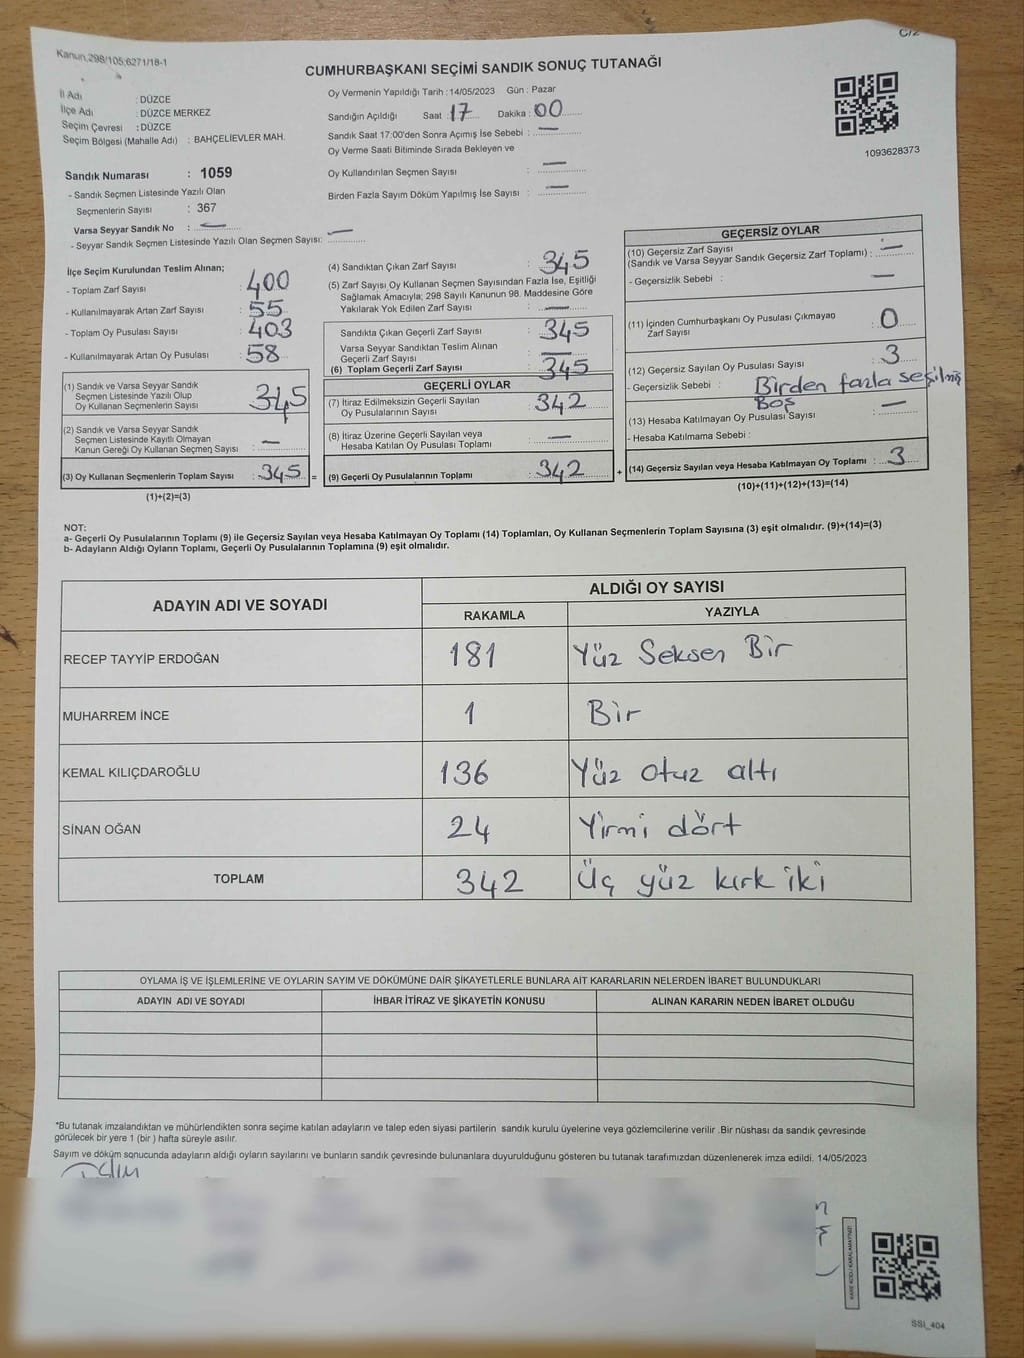 Kanun,298/105;6271/18-1
C/2
CUMHURBAŞKANI SEÇİMİ SANDIK SONUÇ TUTANAĞI
İl Adı : DÜZCE
İlçe Adı : DÜZCE MERKEZ
Seçim Çevresi : DÜZCE
Seçim Bölgesi (Mahalle Adı) : BAHÇELİEVLER MAH.
Oy Vermenin Yapıldığı Tarih : 14/05/2023 Gün : Pazar
Sandığın Açıldığı Saat : 17 Dakika : 00
Sandık Saat 17:00'den Sonra Açımış İse Sebebi : —
Oy Verme Saati Bitiminde Sırada Bekleyen ve
Oy Kullandırılan Seçmen Sayısı : —
Birden Fazla Sayım Döküm Yapılmış İse Sayısı : —
1093628373
Sandık Numarası : 1059
- Sandık Seçmen Listesinde Yazılı Olan
Seçmenlerin Sayısı : 367
Varsa Seyyar Sandık No : —
- Seyyar Sandık Seçmen Listesinde Yazılı Olan Seçmen Sayısı: —
İlçe Seçim Kurulundan Teslim Alınan;
- Toplam Zarf Sayısı : 400
- Kullanılmayarak Artan Zarf Sayısı : 55
- Toplam Oy Pusulası Sayısı : 403
- Kullanılmayarak Artan Oy Pusulası : 58
(1) Sandık ve Varsa Seyyar Sandık
Seçmen Listesinde Yazılı Olup
Oy Kullanan Seçmenlerin Sayısı : 345
(2) Sandık ve Varsa Seyyar Sandık
Seçmen Listesinde Kayıtlı Olmayan
Kanun Gereği Oy Kullanan Seçmen Sayısı : —
(3) Oy Kullanan Seçmenlerin Toplam Sayısı : 345 =
(1)+(2)=(3)
(4) Sandıktan Çıkan Zarf Sayısı : 345
(5) Zarf Sayısı Oy Kullanan Seçmen Sayısından Fazla İse, Eşitliği
Sağlamak Amacıyla; 298 Sayılı Kanunun 98. Maddesine Göre
Yakılarak Yok Edilen Zarf Sayısı : —
Sandıkta Çıkan Geçerli Zarf Sayısı : 345
Varsa Seyyar Sandıktan Teslim Alınan
Geçerli Zarf Sayısı : —
(6) Toplam Geçerli Zarf Sayısı : 345
GEÇERLİ OYLAR
(7) İtiraz Edilmeksizin Geçerli Sayılan
Oy Pusulalarının Sayısı : 342
(8) İtiraz Üzerine Geçerli Sayılan veya
Hesaba Katılan Oy Pusulası Toplamı : —
(9) Geçerli Oy Pusulalarının Toplamı : 342 +
GEÇERSİZ OYLAR
(10) Geçersiz Zarf Sayısı
(Sandık ve Varsa Seyyar Sandık Geçersiz Zarf Toplamı) : —
- Geçersizlik Sebebi : —
(11) İçinden Cumhurbaşkanı Oy Pusulası Çıkmayan
Zarf Sayısı : 0
(12) Geçersiz Sayılan Oy Pusulası Sayısı : 3
- Geçersizlik Sebebi : Birden fazla seçilmiş
Boş
(13) Hesaba Katılmayan Oy Pusulası Sayısı : —
- Hesaba Katılmama Sebebi :
(14) Geçersiz Sayılan veya Hesaba Katılmayan Oy Toplamı : 3
(10)+(11)+(12)+(13)=(14)
NOT:
a- Geçerli Oy Pusulalarının Toplamı (9) ile Geçersiz Sayılan veya Hesaba Katılmayan Oy Toplamı (14) Toplamları, Oy Kullanan Seçmenlerin Toplam Sayısına (3) eşit olmalıdır. (9)+(14)=(3)
b- Adayların Aldığı Oyların Toplamı, Geçerli Oy Pusulalarının Toplamına (9) eşit olmalıdır.
ADAYIN ADI VE SOYADI ALDIĞI OY SAYISI
RAKAMLA YAZIYLA
RECEP TAYYİP ERDOĞAN 181 Yüz Seksen Bir
MUHARREM İNCE 1 Bir
KEMAL KILIÇDAROĞLU 136 Yüz otuz altı
SİNAN OĞAN 24 Yirmi dört
TOPLAM 342 Üç yüz kırk iki
OYLAMA İŞ VE İŞLEMLERİNE VE OYLARIN SAYIM VE DÖKÜMÜNE DAİR ŞİKAYETLERLE BUNLARA AİT KARARLARIN NELERDEN İBARET BULUNDUKLARI
ADAYIN ADI VE SOYADI İHBAR İTİRAZ VE ŞİKAYETİN KONUSU ALINAN KARARIN NEDEN İBARET OLDUĞU
*Bu tutanak imzalandıktan ve mühürlendikten sonra seçime katılan adayların ve talep eden siyasi partilerin sandık kurulu üyelerine veya gözlemcilerine verilir .Bir nüshası da sandık çevresinde
görülecek bir yere 1 (bir ) hafta süreyle asılır.
Sayım ve döküm sonucunda adayların aldığı oyların sayılarını ve bunların sandık çevresinde bulunanlara duyurulduğunu gösteren bu tutanak tarafımızdan düzenlenerek imza edildi. 14/05/2023
SSI_404